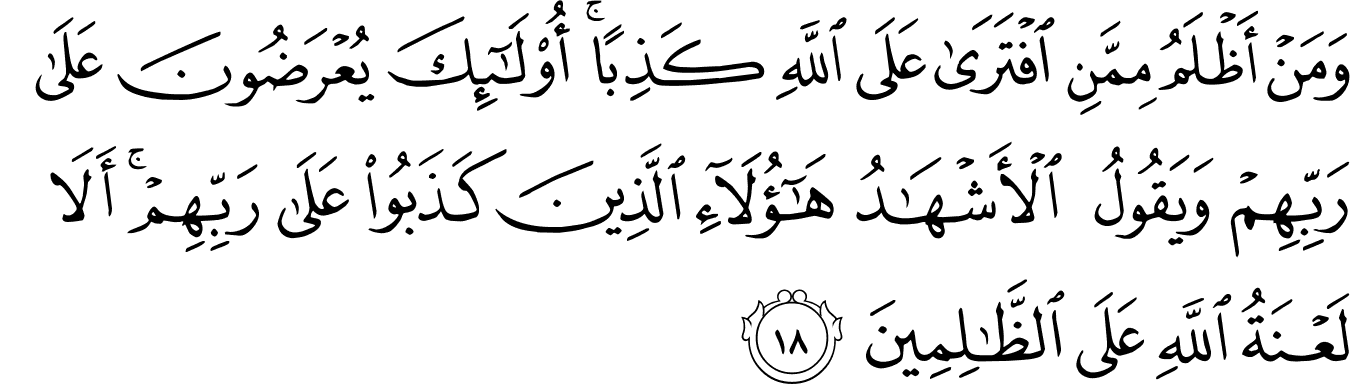 وَمَنۡ أَظۡلَمُ مِمَّنِ ٱفۡتَرَىٰ عَلَى ٱللَّهِ كَذِبًاۚ أُوْلَـٰٓئِكَ يُعۡرَضُونَ عَلَىٰ
رَبِّهِمۡ وَيَقُولُ ٱلۡأَشۡهَـٰدُ هَـٰٓؤُلَآءِ ٱلَّذِينَ كَذَبُواْ عَلَىٰ رَبِّهِمۡۚ أَلَا
لَعۡنَةُ ٱللَّهِ عَلَى ٱلظَّـٰلِمِينَ ١٨